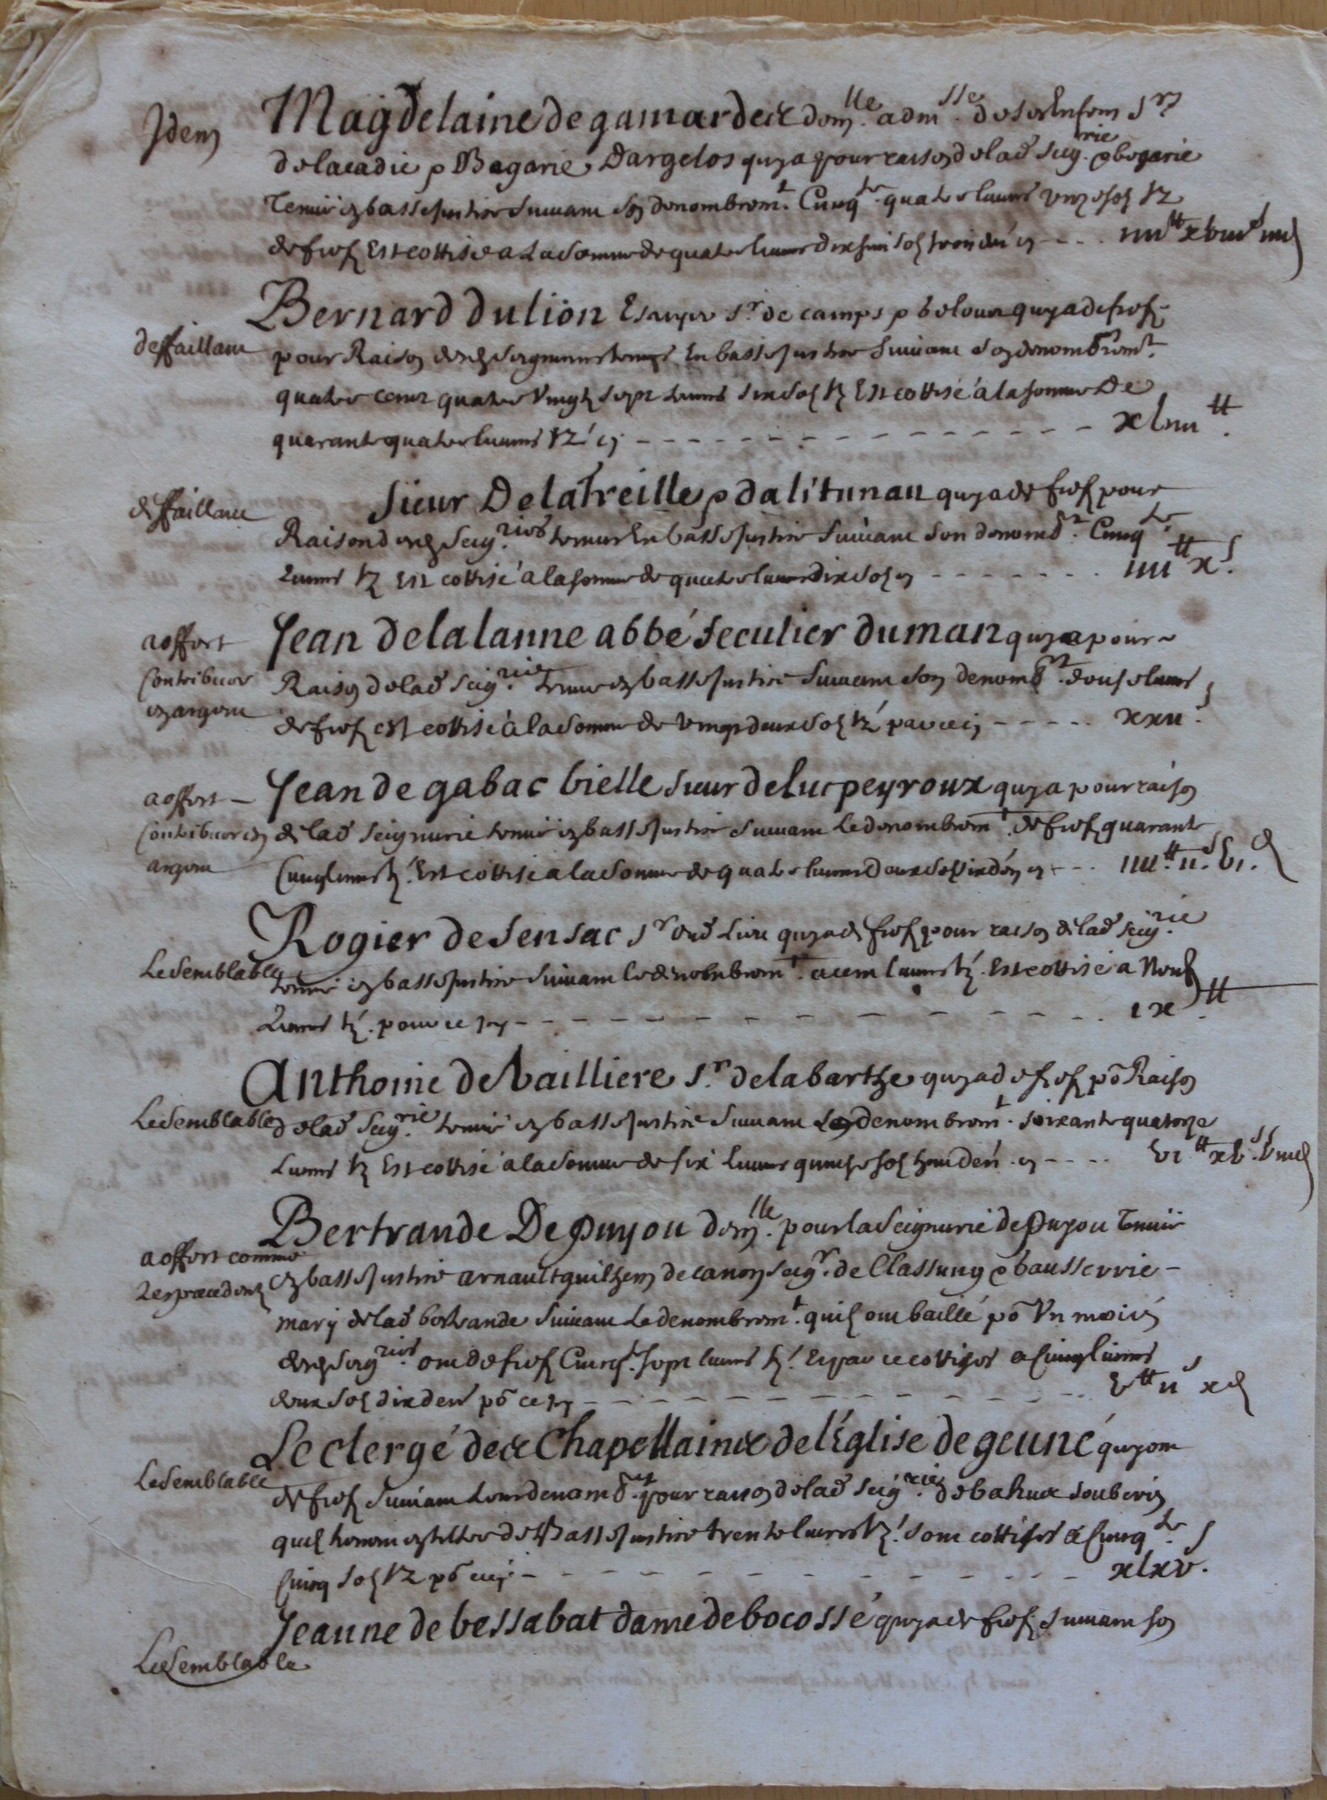 Idem
Magdelaine de gamardez dom.lle adm.sse de ses Enfens Srs
de lacadie p Bagarie Dargelos quy a pour raison de lad seig.rie p begarie
Tenue en basse Justice suivant son denombrem.t Cinq.te quatre livres unze solz tz
de fief Est cottisé a La somme de quatre livres dix huit solz trois den en - - - iiii tt xviii s iii d
deffaillant
Bernard du lion Escuyer s.r de camps p belour quy a de fief
pour Raison desd seigneuries tenues En basse Justice suivant son denombrem.t
quatre cens quatre vingtz sept livres six solz tz Est cottisé a la somme De
quarante quatre livres tz en - - - xliiii tt.
deffaillant
sieur De latreille p dalitunau quy a de fief pour
Raison desd seig.ries tenues En basse Justice suivant son denomb.t Cinq.te
livres tz Est cottisé a la somme de quatre livres dix solz en - - - iiii tt x s.
a offert
Contribuer
en argent
Jean de lalanne abbé seculier du man quy a pour
Raison de lad seig.rie tenue en basse Justice suivant son denomb.t douse livres
de fief est cottisé a la somme de vingt deux solz tz pour ce cy - - - xxii s
a offert
Contribuer en
argent
Jean de gabac bielle sieur de lucpeyroux quy a pour raison
de lad seigneurie tenue en basse Justice suivant le denombrem.t de fief quarante
Cinq livres tz Est cottisé a la somme de quatre livres deux solz six den en - - - iiii tt ii s vi d
Le semblable
Rogier de sensac s.r dud Lieu quy a de fief pour raison de lad seig.rie
tenue en basse Justice suivant le denombrem.t a cent livres tz Est cottisé a Neuf
Livres tz pour ce cy - - - ix tt
Le semblable
Anthonie de Vailliere s.r de labarthe quy a de fief po Raison
de lad seig.rie tenue en basse Justice suivant Le denombrem.t soixante quatorze
Livres tz Est cottisé a la somme de six livres quinse solz den en - - - vi tt xv s
a offert comme
Les precedens
Bertrande De puyou dem.lle pour la Seigneurie de puyou Tenue
en basse Justice arnault guilhem de canon seig.r de Classung p bausserrie
mary de lad bertrande suivant Le denombrem.t quilz ont baillé po Un moicié
desd seig.ries ont de fief Cinq.te sept livres tz Et pour ce cottisés a Cinq livres
deux solz dix den po ce cy - - - v tt ii s x d
Le semblable
Le clergé de & Chapellainie de l'Eglise de geune quy ont
de fief suivant Leur denomb.t pour raison de lad seig.rie de bahux soubiris
quilz tiennent en tiltre de Basse Justice trente livres tz sont cottisés a Cinq.te
Cinq solz tz po ce cy - - - xlxv s
Le semblable
Jeanne de bessabat dame de bocossé quy a de fief suivant son